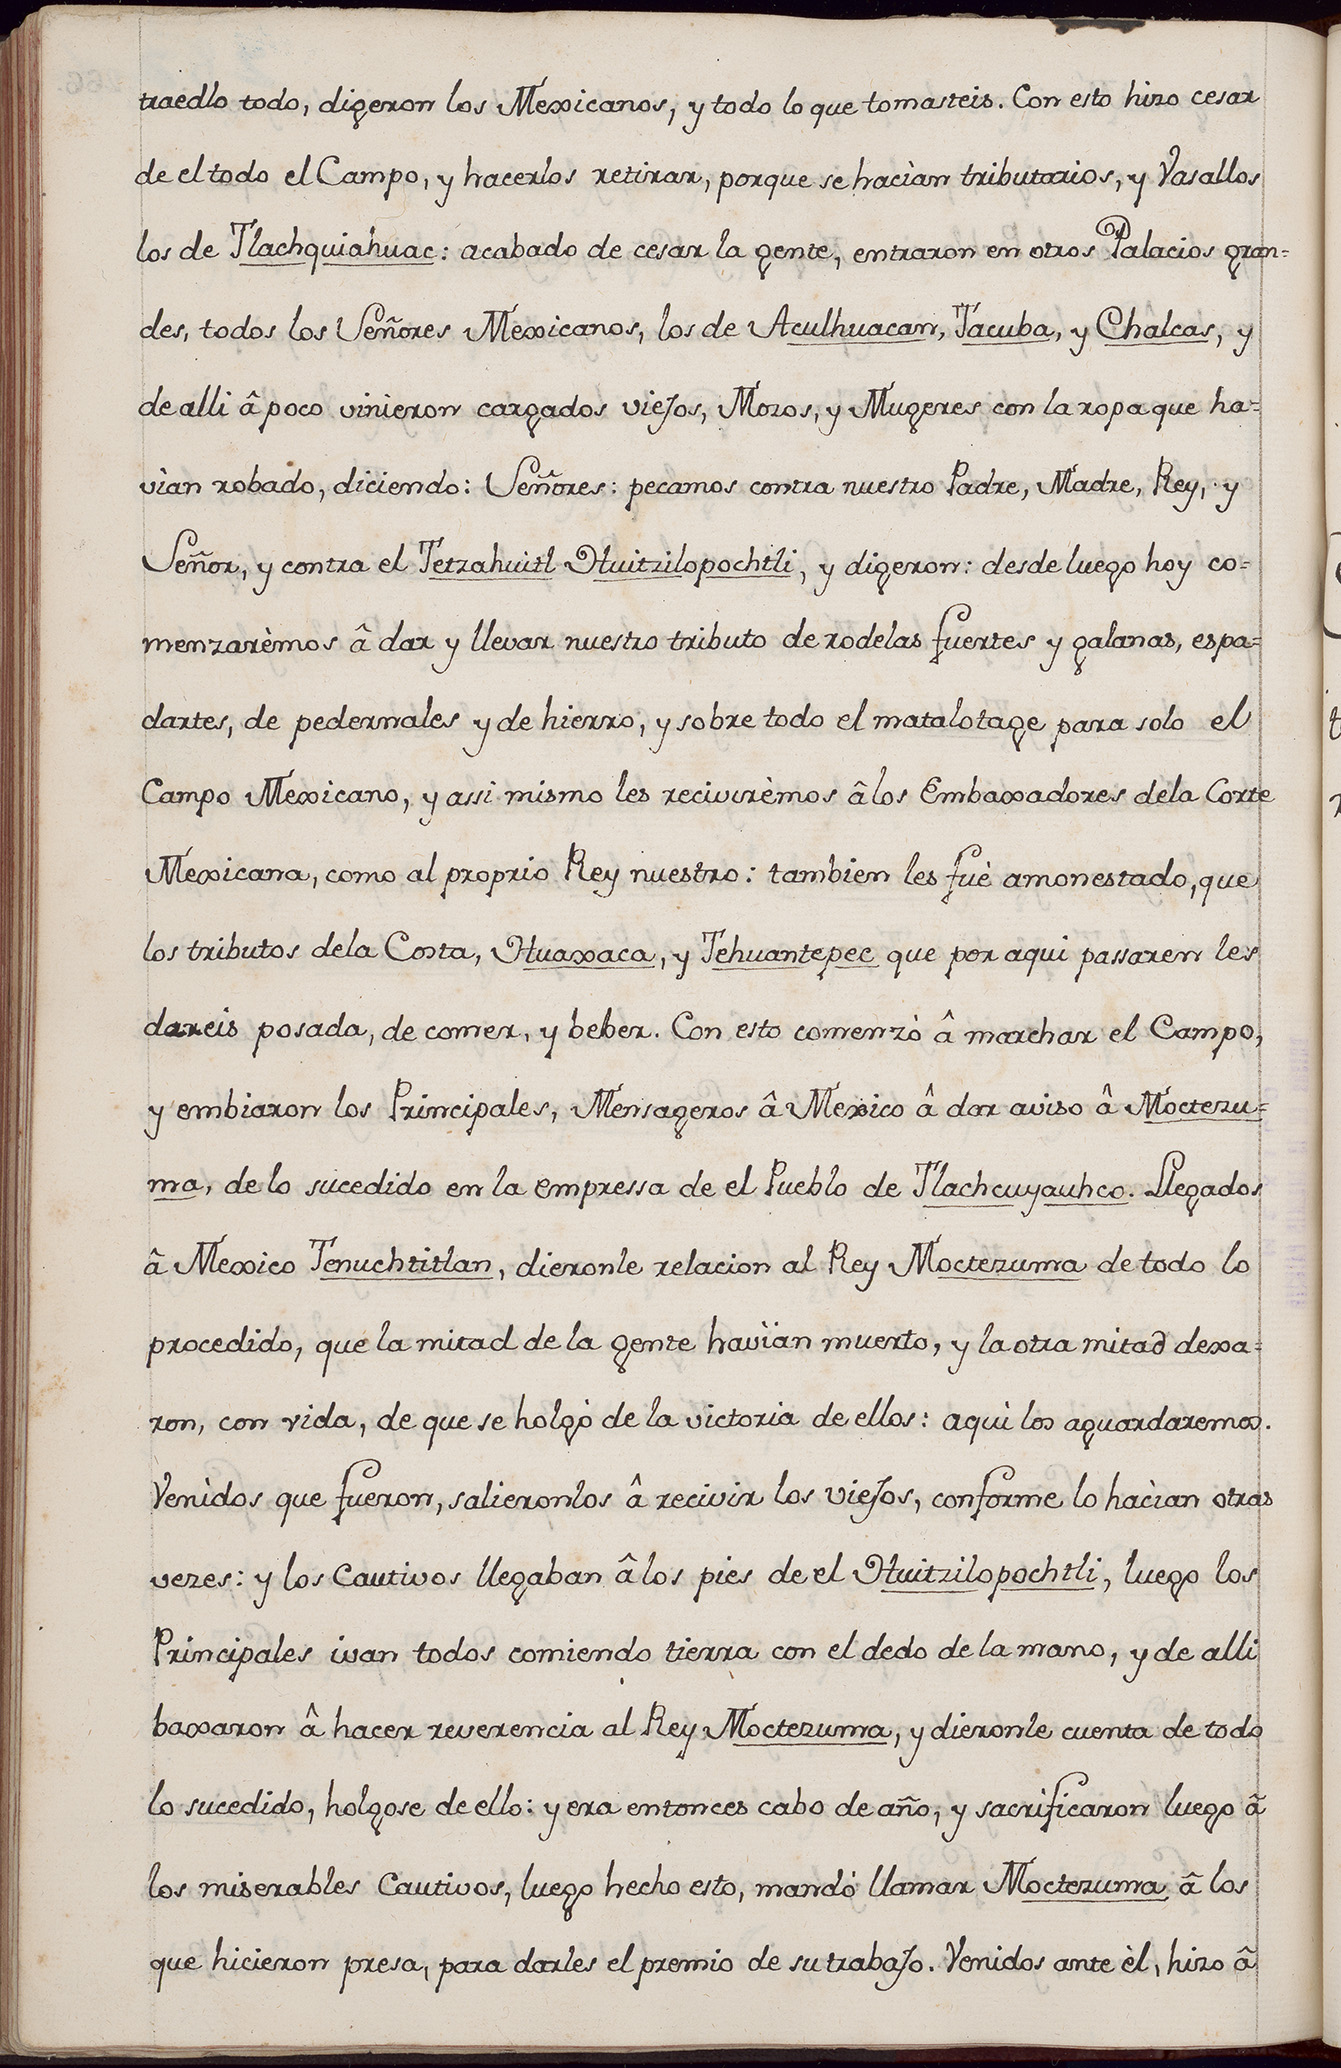 traedlo todo, digeron los Mexicanos, y todo lo que tomasteis. Con esto hizo cesar
de el todo el Campo, y hacerlos retirar, porque se hacìan tributarios, y Vasallos
los de Tlachquiahuac: acabado de cesar la gente, entraron en otros Palacios gran=
des, todos los Señores Mexicanos, los de Aculhuacan, Tacuba, y Chalcas, y
de alli â poco vinieron cargados viejos, Mozos, y Mugeres con la ropa que ha=
vìan robado, diciendo: Señores: pecamos contra nuestro Padre, Madre, Rey, y
Señor, y contra el Tetzahuitl Huitzilopochtli, y digeron: desde luego hoy co=
menzarèmos â dar y llevar nuestro tributo de rodelas fuertes y galanas, espa=
dartes, de pedernales y de hierro, y sobre todo el matalotage para solo el
Campo Mexicano, y assi mismo les recivirèmos â los Embaxadores dela Corte
Mexicana, como al proprio Rey nuestro: tambien les fuè amonestado, que
los tributos dela Costa, Huaxaca, y Tehuantepec que por aqui passaren les
dareis posada, de comer, y beber. Con esto comenzò â marchar el Campo,
y embiaron los Principales, Mensageros â Mexico â dar aviso â Moctezu=
ma, de lo sucedido en la empressa de el Pueblo de Tlachcuyauhco. Llegados
â Mexico Tenuchtitlan, dieronle relacion al Rey Moctezuma de todo lo
procedido, que la mitad de la gente havìan muerto, y la otra mitad dexa=
ron, con vida, de que se holgò de la victoria de ellos: aquì los aguardaremos.
Venìdos que fueron, salieronlos â recivir los viejos, conforme lo hacìan otras
vezes: y los Cautivos llegaban â los pies de el Huitzilopochtli, luego los
Principales ivan todos comiendo tierra con el dedo de la mano, y de alli
baxaron â hacer reverencia al Rey Moctezuma, y dieronle cuenta de todo
lo sucedido, holgose de ello: y era entonces cabo de año, y sacrificaron luego â
los miserables Cautivos, luego hecho esto, mandò llamar Moctezuma â los
que hicieron presa, para darles el premio de su trabajo. Venidos ante èl, hizo â